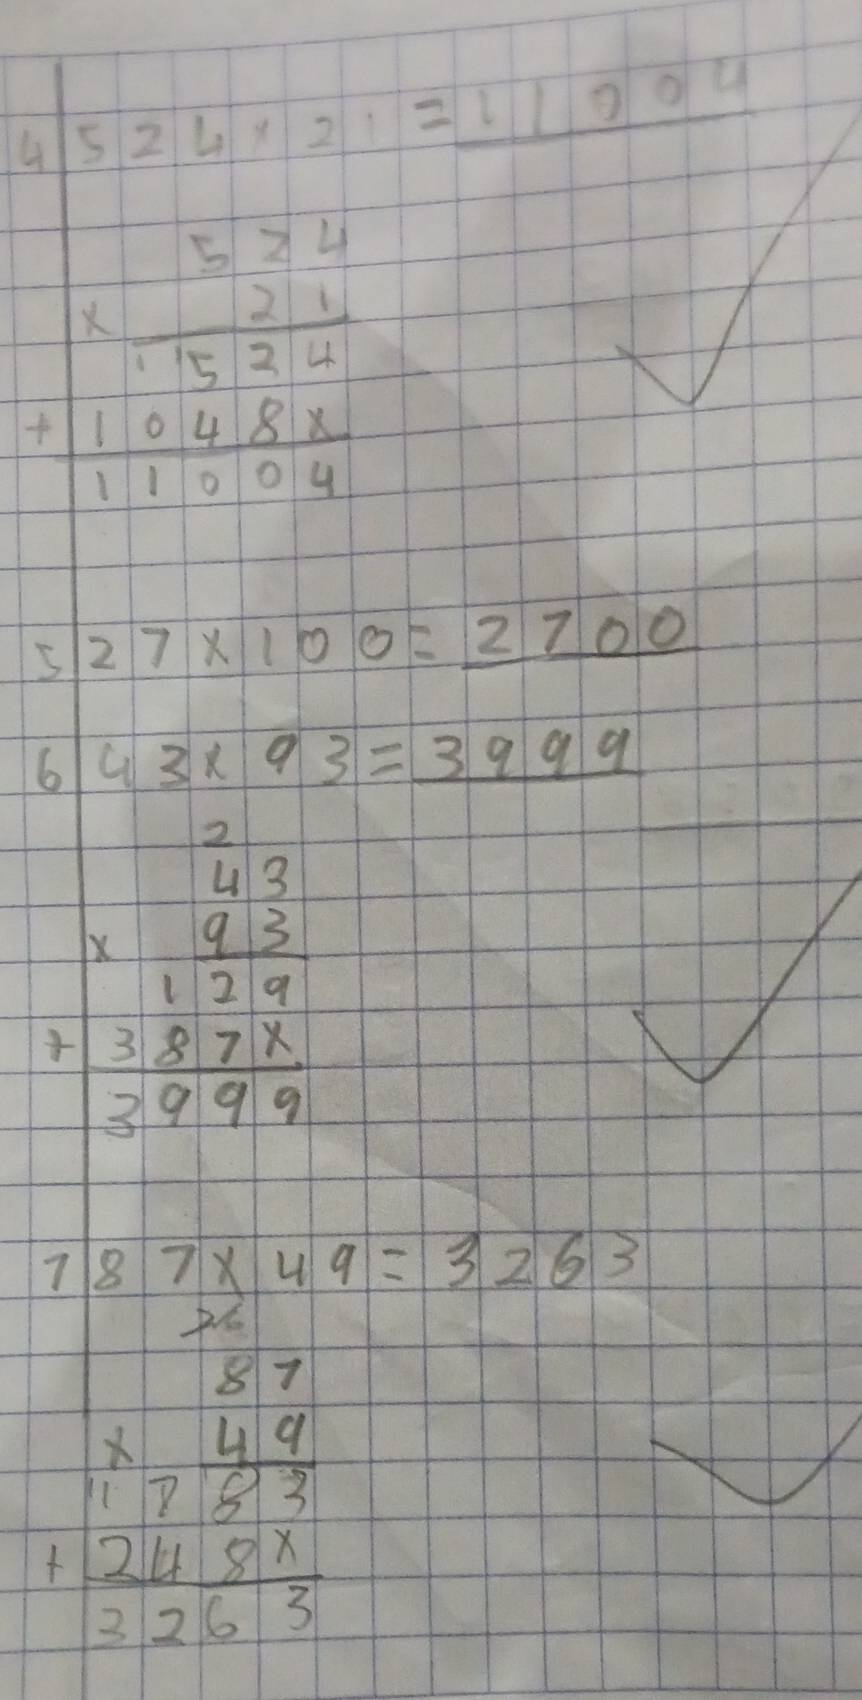 4 524 × 21 = 11004
524
× 21
524
+ 1048×
11004
5 27 × 100 = 2700
6 43 × 93 = 3999
2
43
× 93
129
+ 387×
3999
7 87 × 49 = 3263
26
87
× 49
783
+ 248×
3263